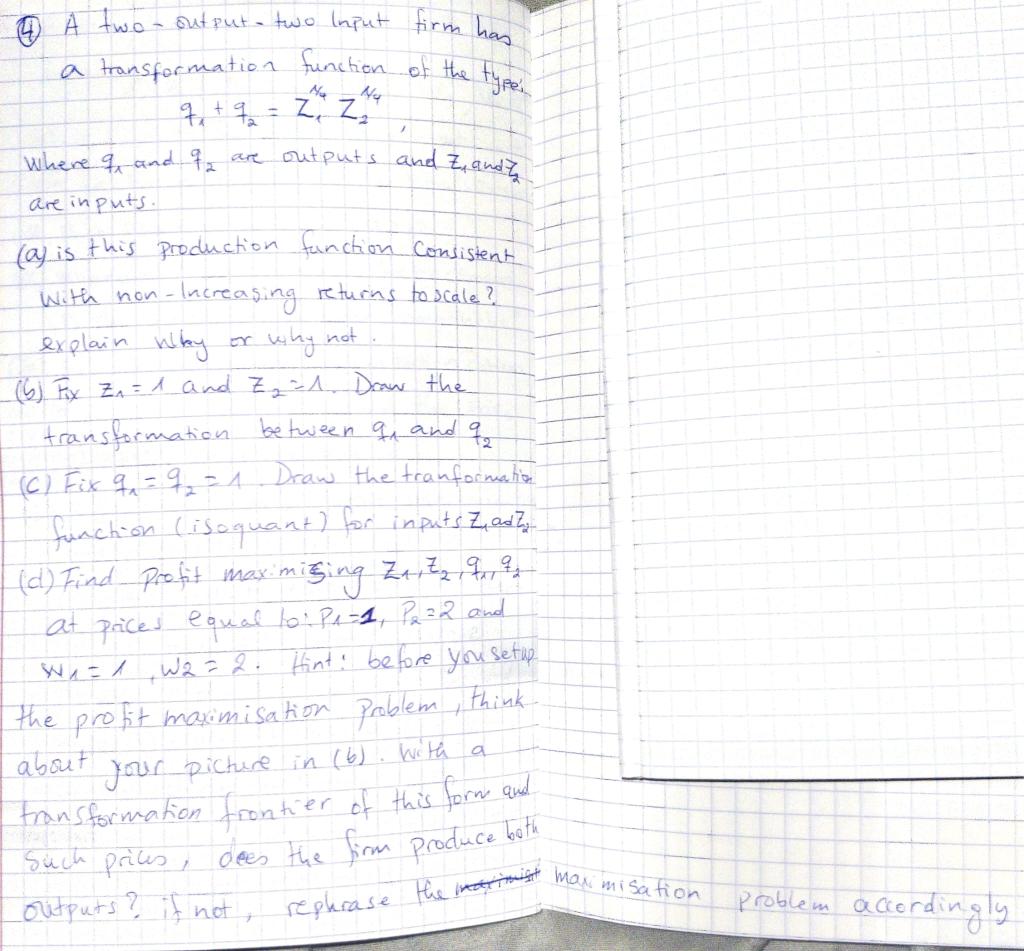 ④ A two-output-two Input firm has
a transformation function of the type:
q₁ + q₂ = Z₁^1/4 Z₂^1/4,
where q₁ and q₂ are outputs and Z₁ and Z₂
are inputs.
(a) is this production function Consistent
with non-Increasing returns to scale?
explain why or why not.
(b) Fix Z₁ = 1 and Z₂ = 1. Draw the
transformation between q₁ and q₂
(c) Fix q₁ = q₂ = 1 Draw the tranformation
function (isoquant) for inputs Z₁ ad Z₂
(d) Find Profit maximising Z₁, Z₂, q₁, q₂
at prices equal to: P₁=1, P₂=2 and
W₁ = 1, W2 = 2. Hint: before you setup
the profit maximisation Problem, think
about your picture in (b). With a
transformation frontier of this form and
such prices, does the firm produce both
outputs? if not, rephrase the maximisation problem accordingly